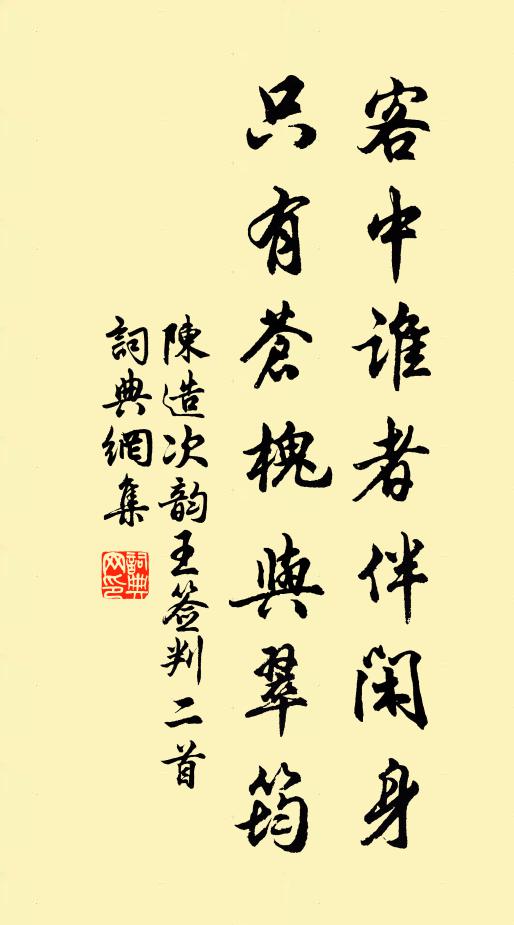 客中誰者伴閑身
只有蒼槐與翠筠
陳造次韵王簽判二首
詞典網集
詞典网印